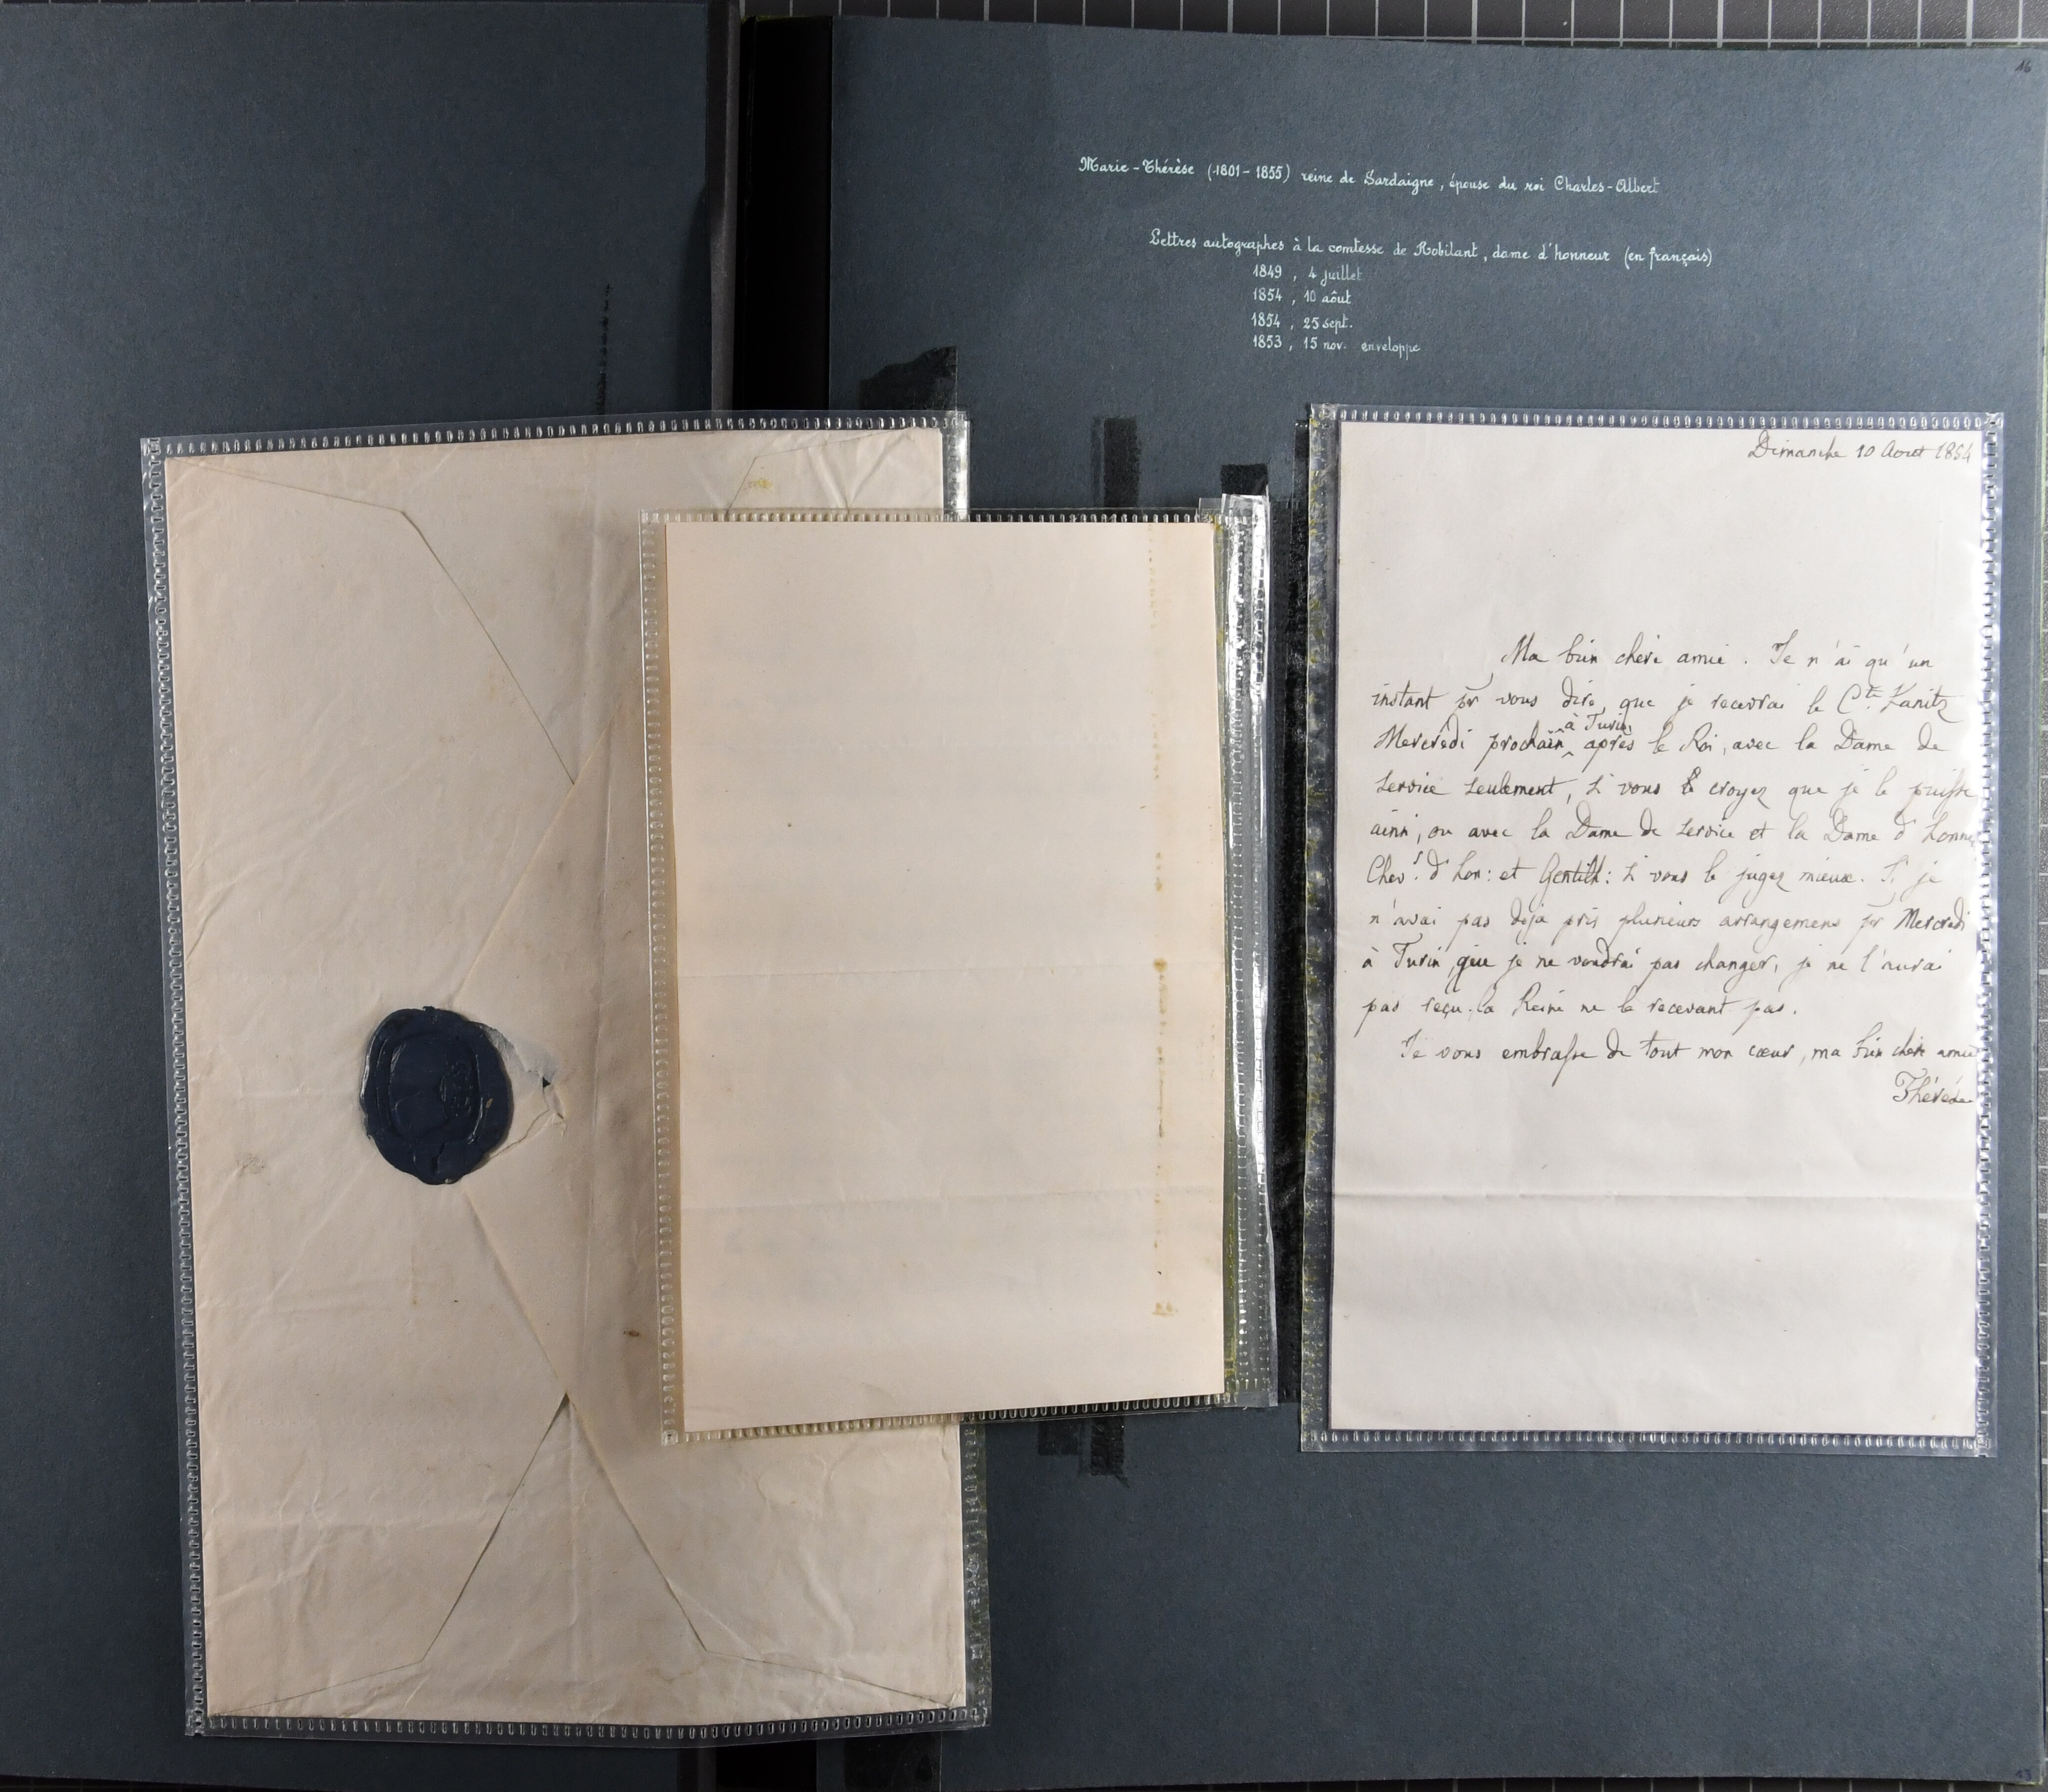 16
Marie-Thérèse (1801-1855) reine de Sardaigne, épouse du roi Charles-Albert
Lettres autographes à la comtesse de Robilant, dame d'honneur (en français)
1849, 4 juillet
1854, 10 août
1854, 25 sept.
1853, 15 nov. enveloppe
Dimanche 10 Aout 1854
Ma bien chere amie. Je n'ai qu'un
instant pr vous dire, que je recevrai le Cte Kanitz
à Turin
Mercredi prochain ^ après le Roi, avec la Dame de
service seulement, si vous croyez que je le puisse
ainsi, ou avec la Dame de service et la Dame d'honne
Chev.r d'hon: et Gentilh: si vous le jugez mieux. Si je
n'avai pas deja pris plusieurs arrangemens pr Mercredi
à Turin, que je ne voudrai pas changer, je ne l'aurai
pas reçu, la Reine ne le recevant pas.
Je vous embrasse de tout mon cœur, ma bien chere amie
Thérèse